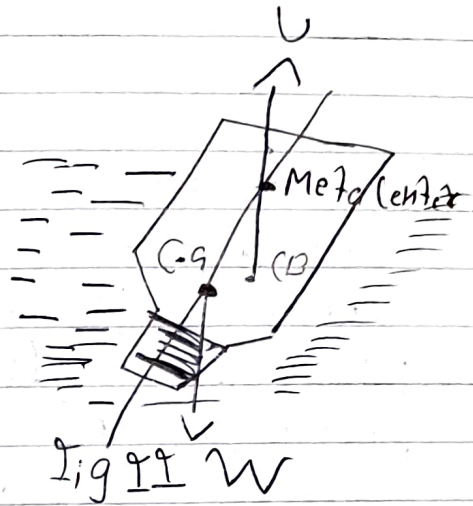 U
Meta Center
C.G
CB
Fig II W